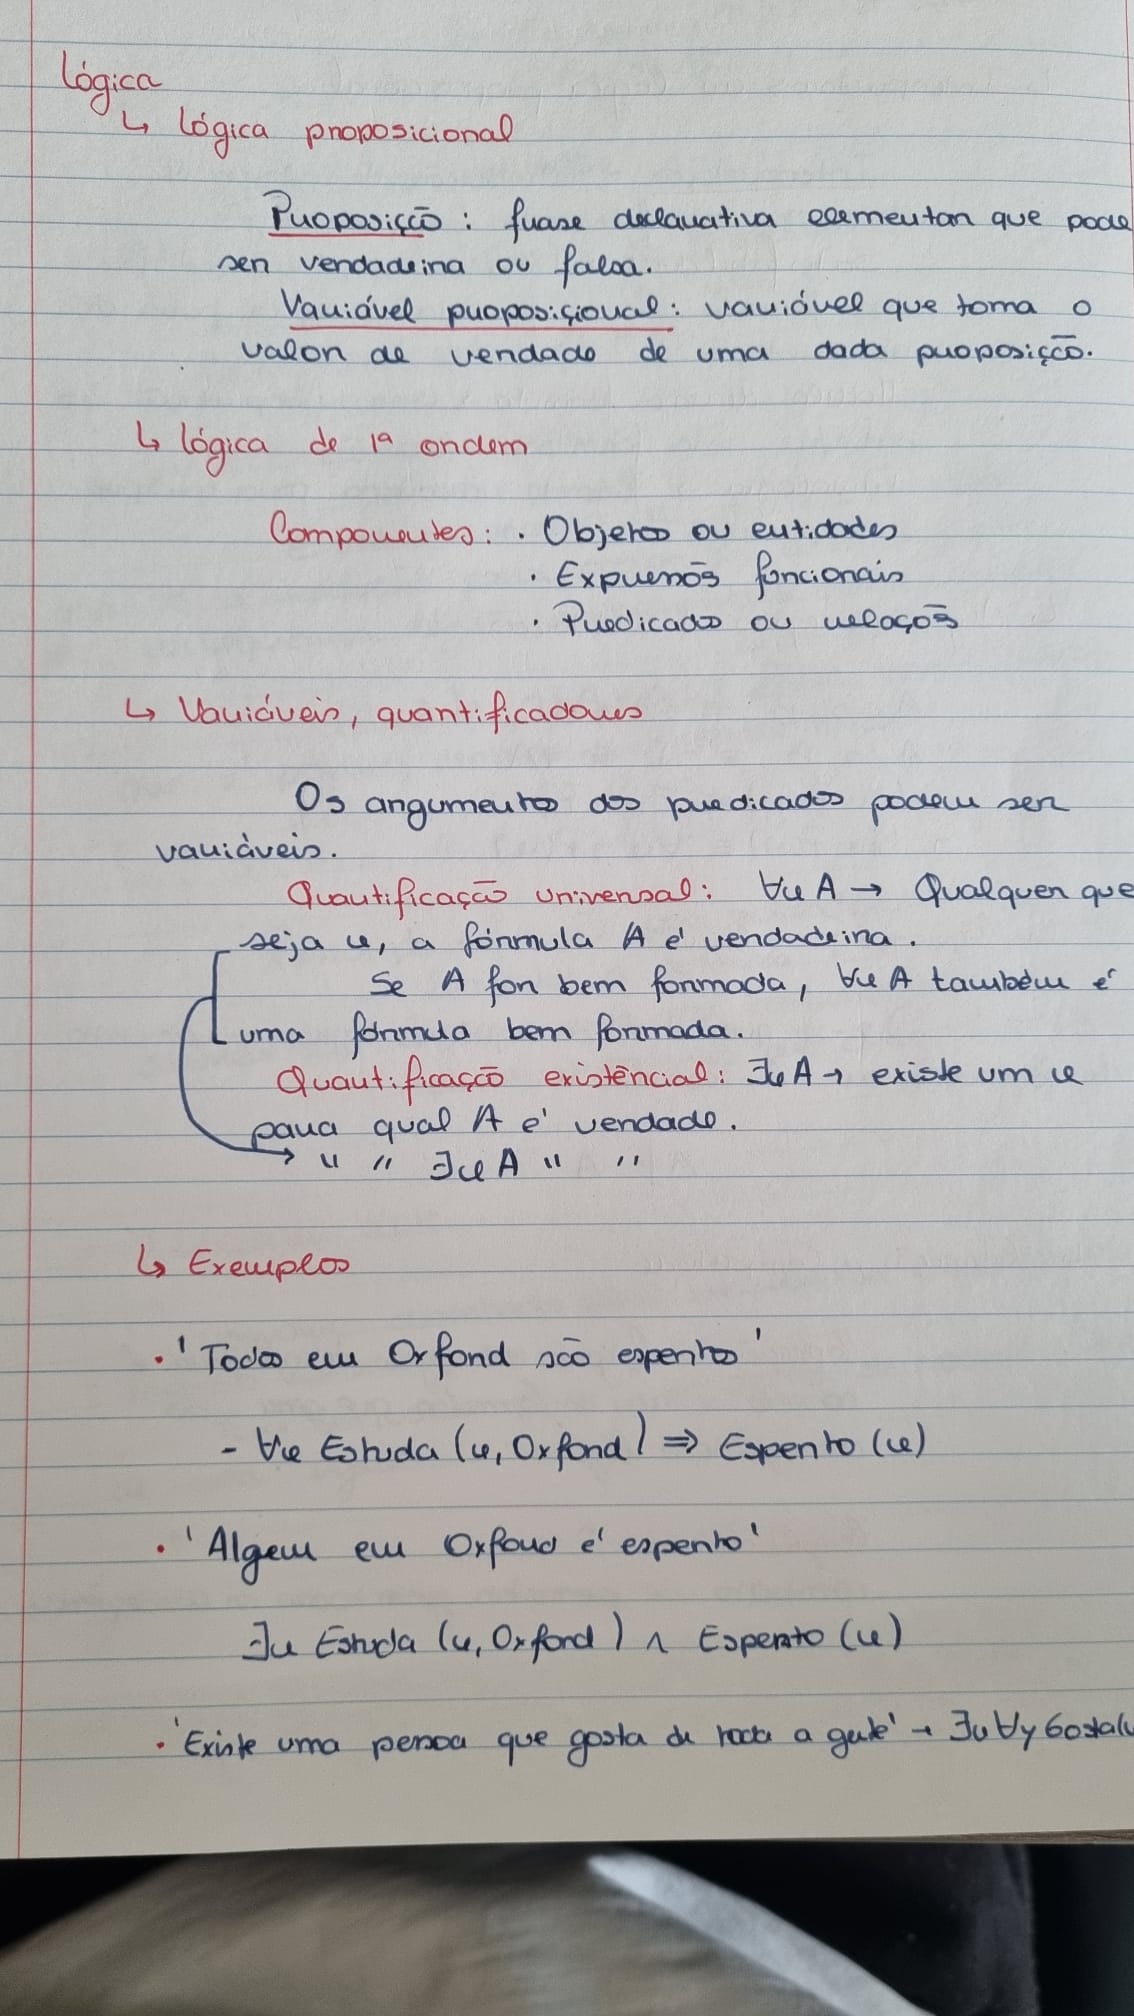 Lógica
↳ Lógica proposicional
Proposição: frase declarativa elementar que pode
ser verdadeira ou falsa.
Variável proposicional: variável que toma o
valor de verdade de uma dada proposição.
↳ Lógica de 1ª ordem
Componentes: · Objetos ou entidades
· Expressões funcionais
· Predicados ou relações
↳ Variáveis, quantificadores
Os argumentos dos predicados podem ser
variáveis.
Quantificação universal: ∀x A → Qualquer que
seja x, a fórmula A é verdadeira.
Se A for bem formada, ∀x A também é
uma fórmula bem formada.
Quantificação existêncial: ∃x A → existe um x
para qual A é verdade.
→ " " ∃x A " "
↳ Exemplos
· 'Todos em Oxford são espertos'
- ∀x Estuda (x, Oxford) ⇒ Esperto (x)
· 'Algem em Oxford é esperto'
∃x Estuda (x, Oxford) ∧ Esperto (x)
· 'Existe uma pessoa que gosta de toda a gente' → ∃x ∀y Gosta(x